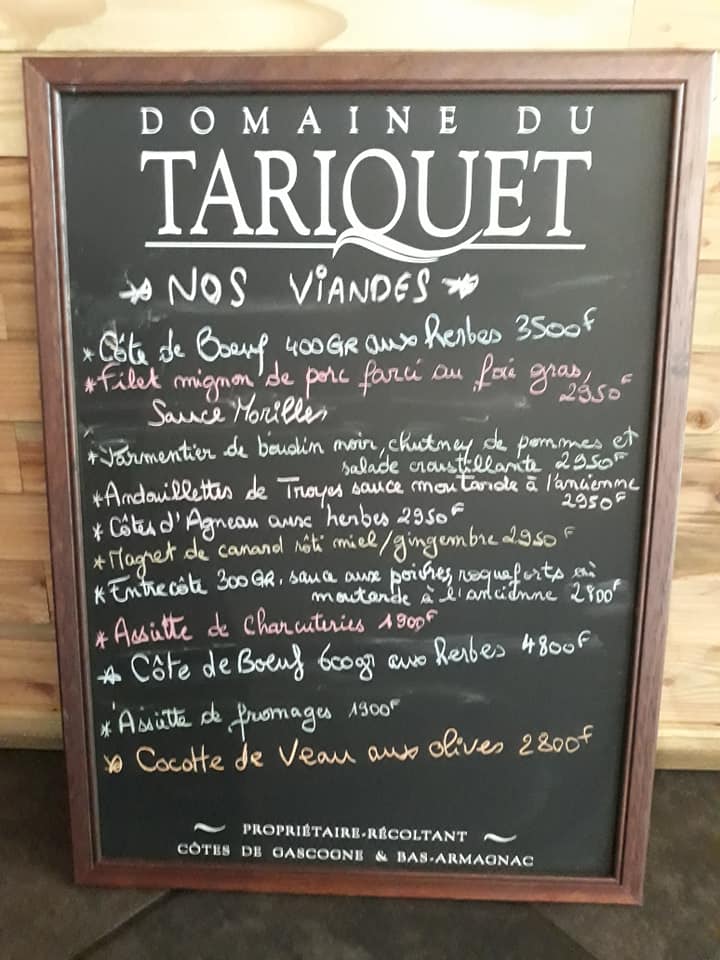 DOMAINE DU
TARIQUET
NOS VIANDES
* Côte de Boeuf 400GR aux herbes 3500F
* Filet mignon de porc farci au foie gras,
2950F
Sauce Morilles
* Parmentier de boudin noir, chutney de pommes et
salade croustillante 2950F
* Andouillettes de Troyes sauce moutarde à l'ancienne
2950F
* Côtes d'Agneau aux herbes 2950F
* Magret de canard rôti miel/gingembre 2950F
* Entrecôte 300GR, sauce aux poivres, roqueforts ou
moutarde à l'ancienne 2800F
* Assiette de Charcuteries 1900F
* Côte de Boeuf 600gr aux herbes 4800F
* Assiette de fromages 1900F
* Cocotte de Veau aux olives 2800F
PROPRIÉTAIRE-RÉCOLTANT
CÔTES DE GASCOGNE & BAS-ARMAGNAC